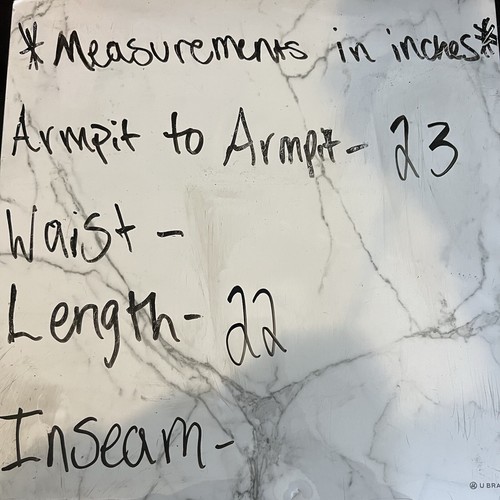 *Measurements in inches*
Armpit to Armpit- 23
Waist -
Length- 22
Inseam-
U BRA